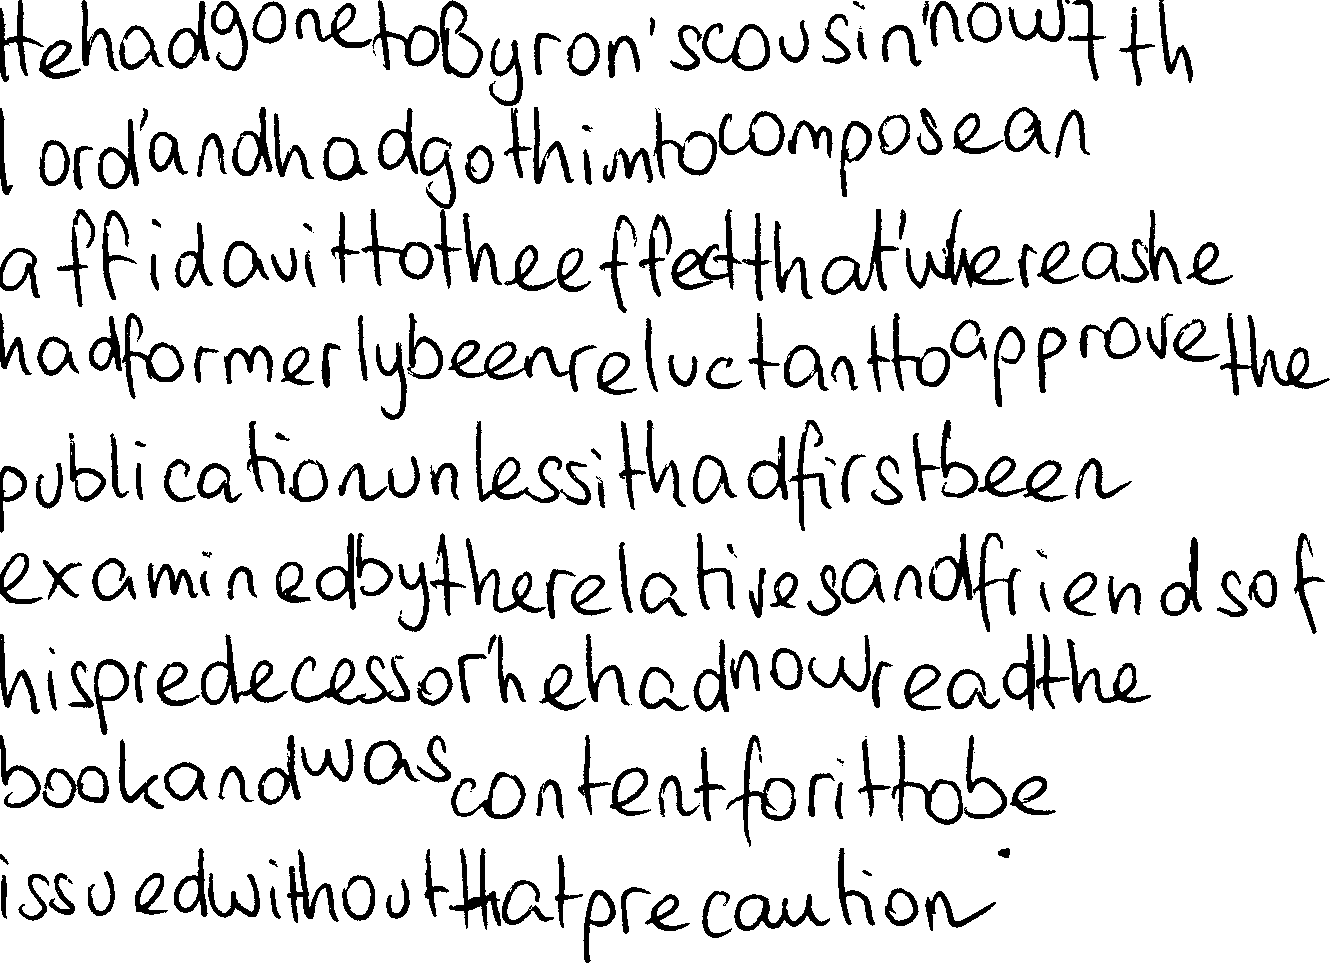 He had gone to Byron's cousin, now 7th
Lord, and had got him to compose an
affidavit to the effect that, whereas he
had formerly been reluctant to approve the
publication unless it had first been
examined by the relatives and friends of
his predecessor, he had now read the
book and was content for it to be
issued without that precaution.